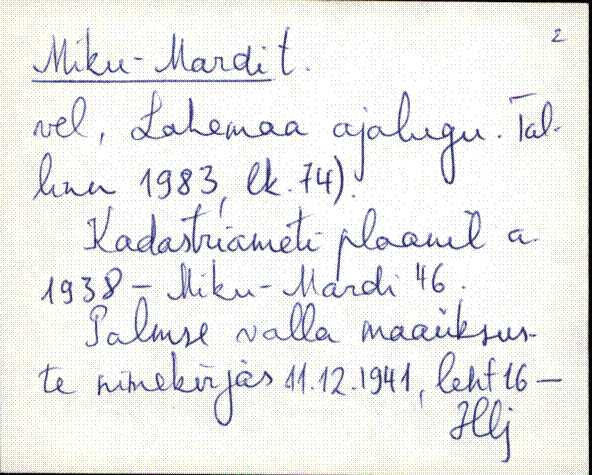 2
Miku-Mardi t.
vel, Lahemaa ajalugu. Tal-
linn 1983, lk. 74).
Kadastriameti plaanil a.
1938 – Miku-Mardi 46.
Palmse valla maaüksus-
te nimekirjas 11.12.1941, leht 16 –